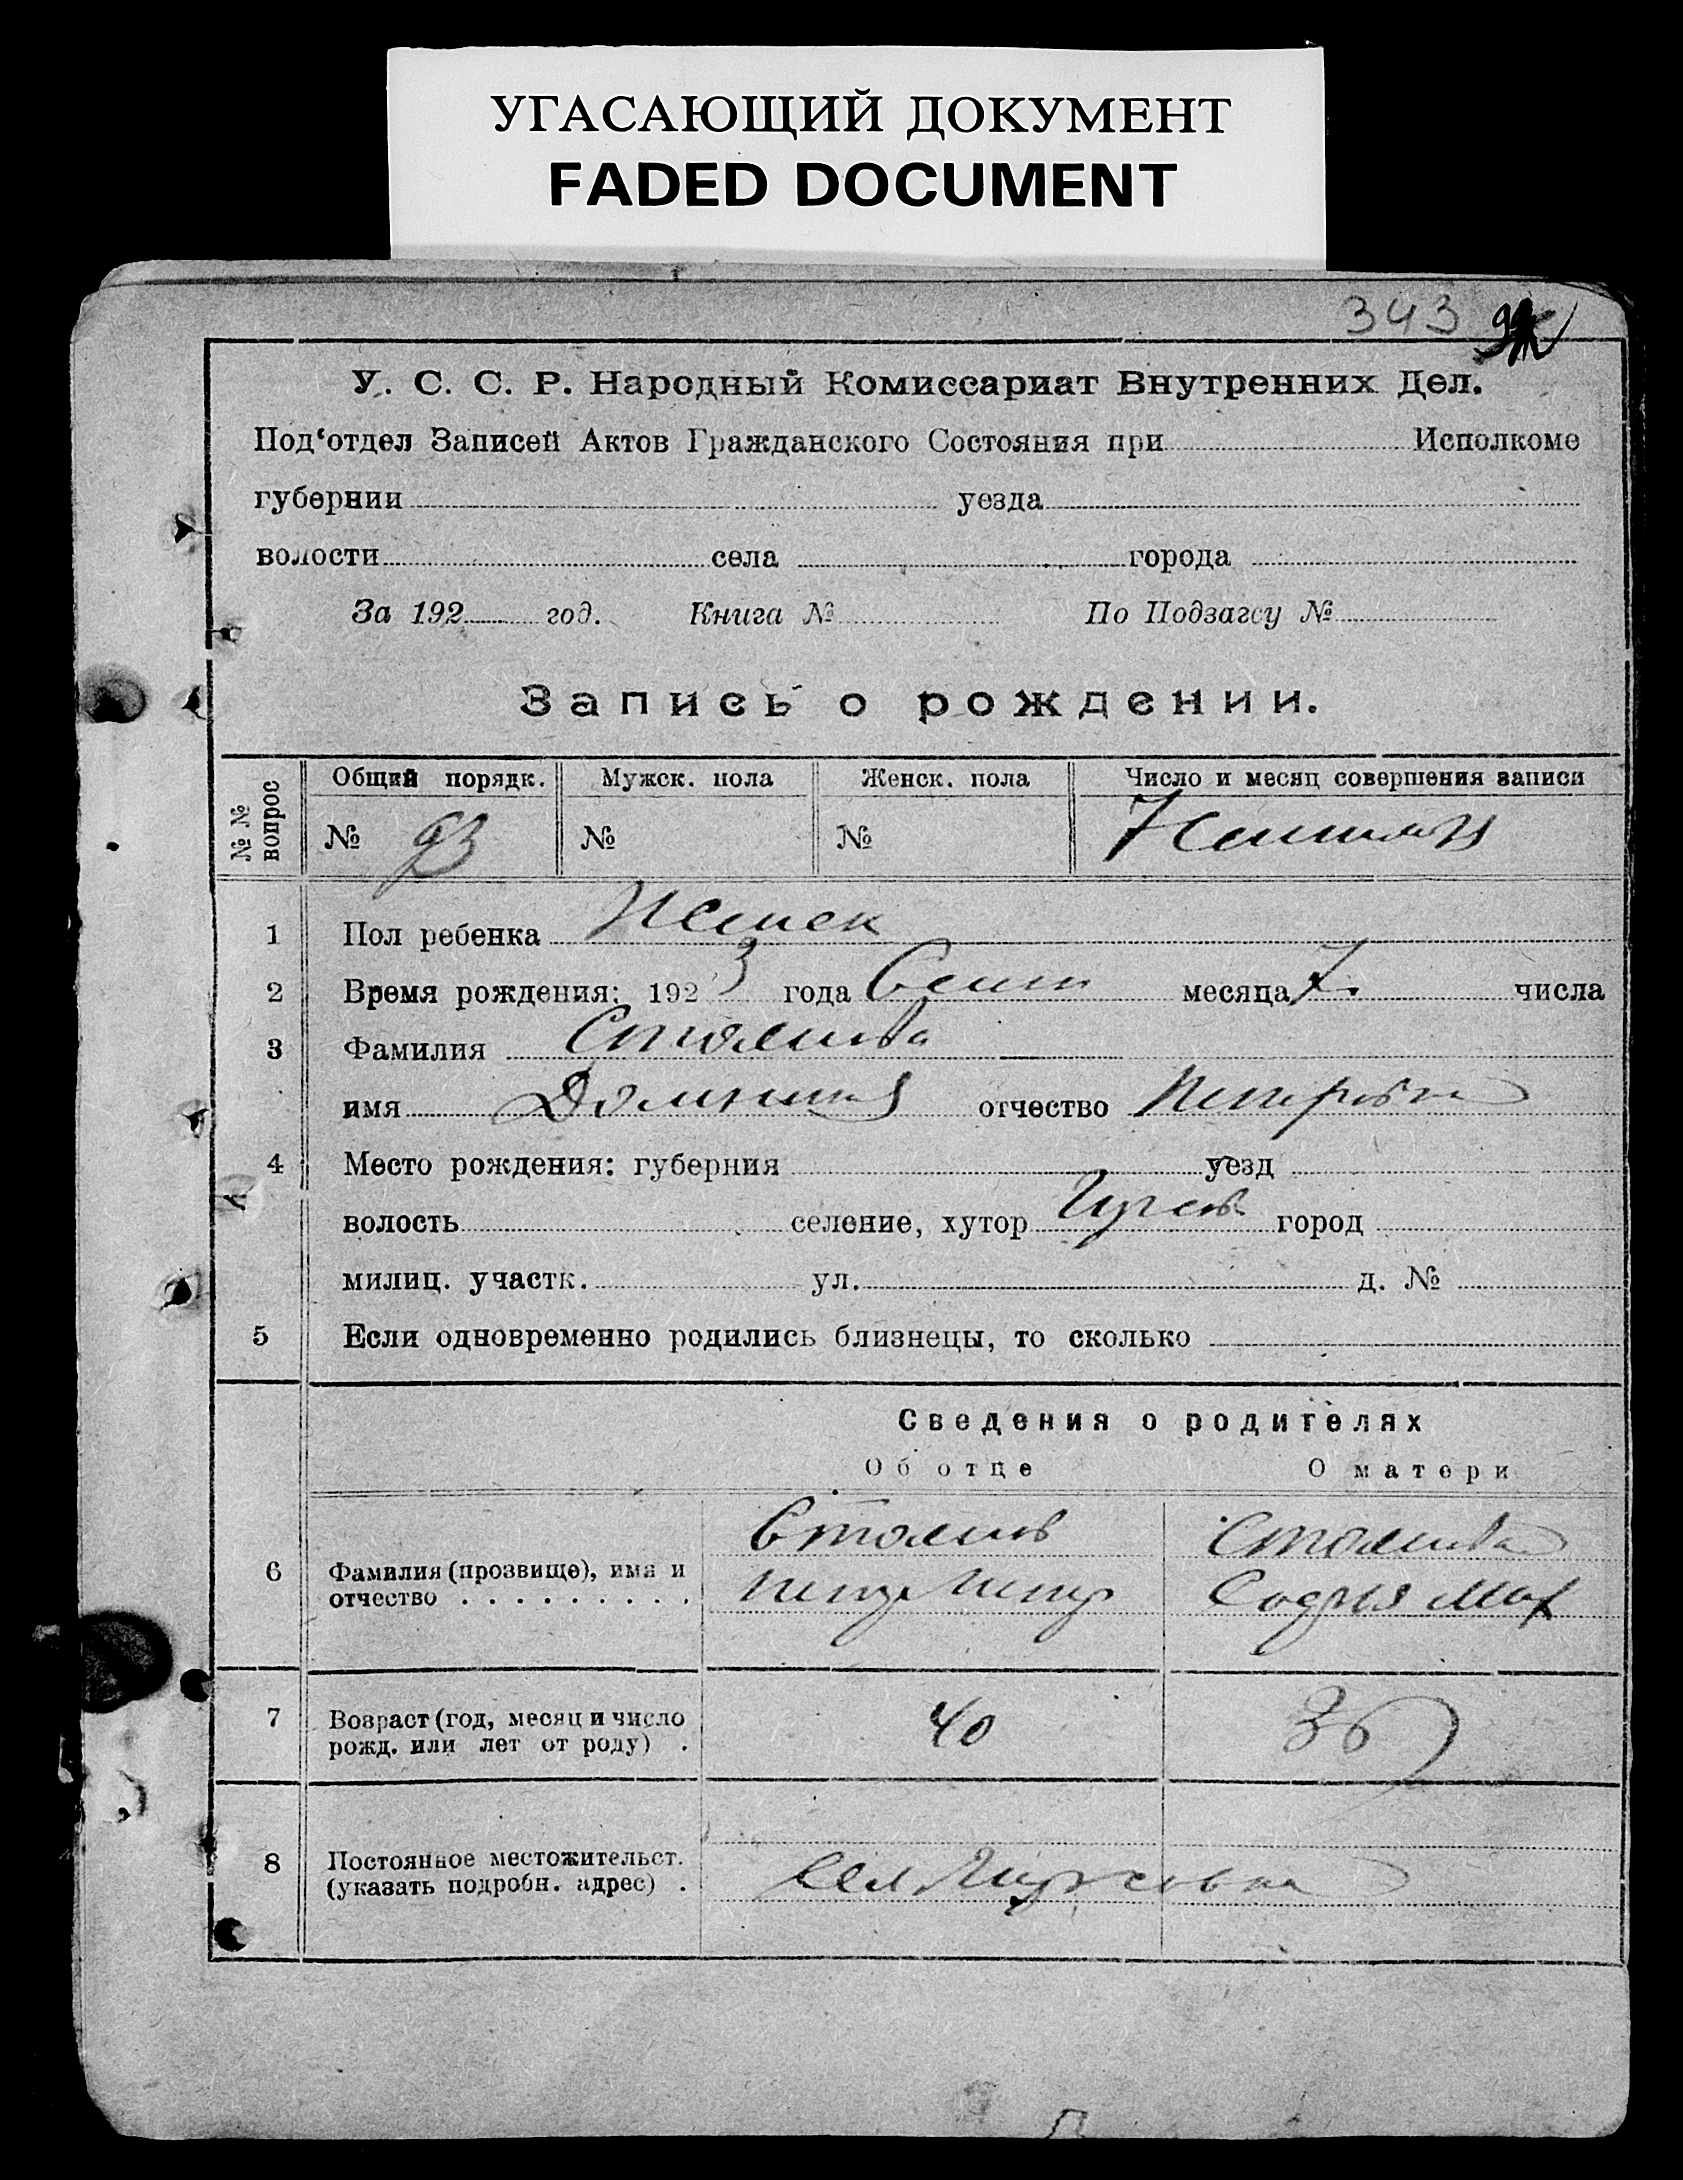 УГАСАЮЩИЙ ДОКУМЕНТ
FADED DOCUMENT
343
У. С. С. Р. Народный Комиссариат Внутренних Дел.
Под‘отдел Записей Актов Гражданского Состояния при Исполкоме
губернии уезда
волости села города
За 192 год. Книга № По Подзагсу №
Запись о рождении.
№ № вопрос Общий порядк. Мужск. пола Женск. пола Число и месяц совершения записи
№ 93 № № 7
1 Пол ребенка Женск
2 Время рождения: 192 3 года Сент месяца 7 числа
3 Фамилия
имя отчество Петровна
4 Место рождения: губерния уезд
волость селение, хутор город
милиц. участк. ул. д. №
5 Если одновременно родились близнецы, то сколько
Сведения о родителях
Об отце О матери
6 Фамилия (прозвище), имя и
отчество . . . . . . . . . Петр Петр Софья
7 Возраст (год, месяц и число 40 36
рожд. или лет от роду) .
8 Постоянное местожительст.
(указать подробн. адрес) .